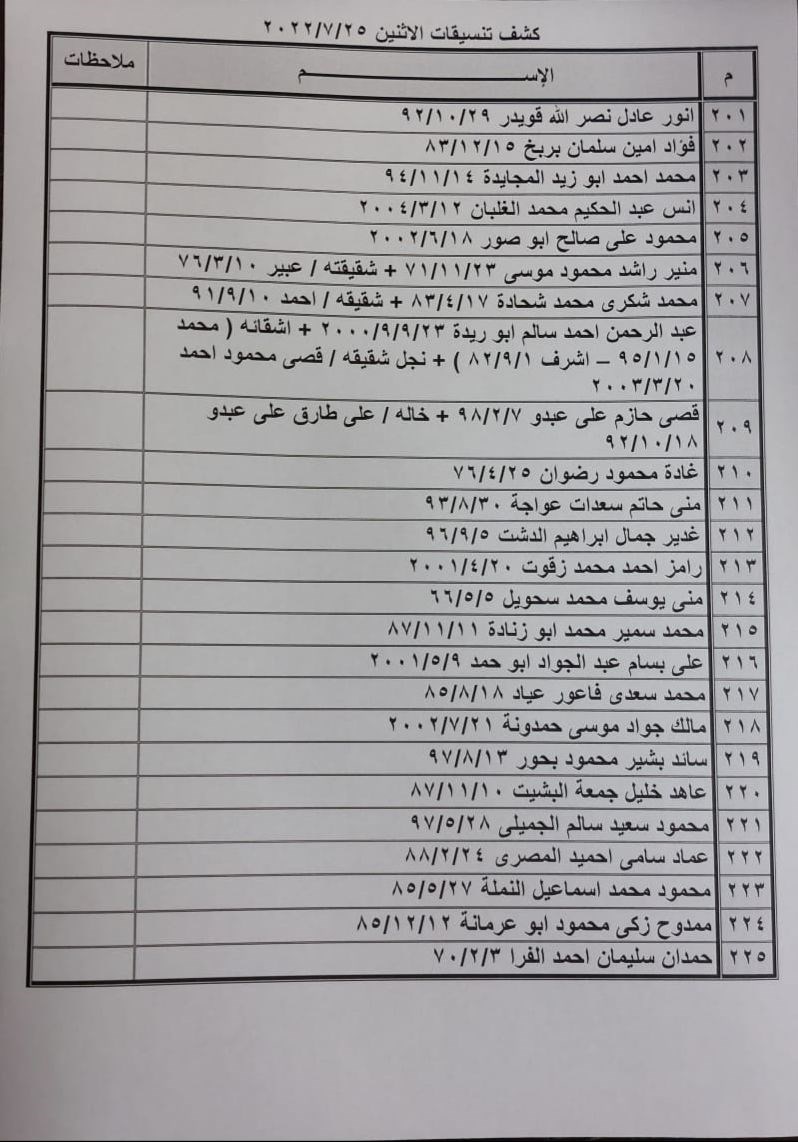 كشف تنسيقات الاثنين ٢٠٢٢/٧/٢٥
م الإســـــــــم ملاحظات
٢٠١ انور عادل نصر الله قويدر ٩٢/١٠/٢٩
٢٠٢ فؤاد امين سلمان بربخ ٨٣/١٢/١٥
٢٠٣ محمد احمد ابو زيد المجايدة ٩٤/١١/١٤
٢٠٤ انس عبد الحكيم محمد الغلبان ٢٠٠٤/٣/١٢
٢٠٥ محمود على صالح ابو صور ٢٠٠٢/٦/١٨
٢٠٦ منير راشد محمود موسى ٧١/١١/٢٣ + شقيقته / عبير ٧٦/٣/١٠
٢٠٧ محمد شكرى محمد شحادة ٨٣/٤/١٧ + شقيقه / احمد ٩١/٩/١٠
عبد الرحمن احمد سالم ابو ريدة ٢٠٠٠/٩/٩/٢٣ + اشقائه ( محمد
٢٠٨ ٩٥/١/١٥ – اشرف ٨٢/٩/١ ) + نجل شقيقه / قصى محمود احمد
٢٠٠٣/٣/٢٠
٢٠٩ قصى حازم على عبدو ٩٨/٢/٧ + خاله / على طارق على عبدو
٩٢/١٠/١٨
٢١٠ غادة محمود رضوان ٧٦/٤/٢٥
٢١١ منى حاتم سعدات عواجة ٩٣/٨/٣٠
٢١٢ غدير جمال ابراهيم الدشت ٩٦/٩/٥
٢١٣ رامز احمد محمد زقوت ٢٠٠١/٤/٢٠
٢١٤ منى يوسف محمد سحويل ٦٦/٥/٥
٢١٥ محمد سمير محمد ابو زنادة ٨٧/١١/١١
٢١٦ على بسام عبد الجواد ابو حمد ٢٠٠١/٥/٩
٢١٧ محمد سعدى فاعور عياد ٨٥/٨/١٨
٢١٨ مالك جواد موسى حمدونة ٢٠٠٢/٧/٢١
٢١٩ سائد بشير محمود بحور ٩٧/٨/١٣
٢٢٠ عاهد خليل جمعة البشيت ٨٧/١١/١٠
٢٢١ محمود سعيد سالم الجميلى ٩٧/٥/٢٨
٢٢٢ عماد سامى احميد المصرى ٨٨/٢/٢٤
٢٢٣ محمود محمد اسماعيل النملة ٨٥/٥/٢٧
٢٢٤ ممدوح زكى محمود ابو عرمانة ٨٥/١٢/١٢
٢٢٥ حمدان سليمان احمد الفرا ٧٠/٢/٣